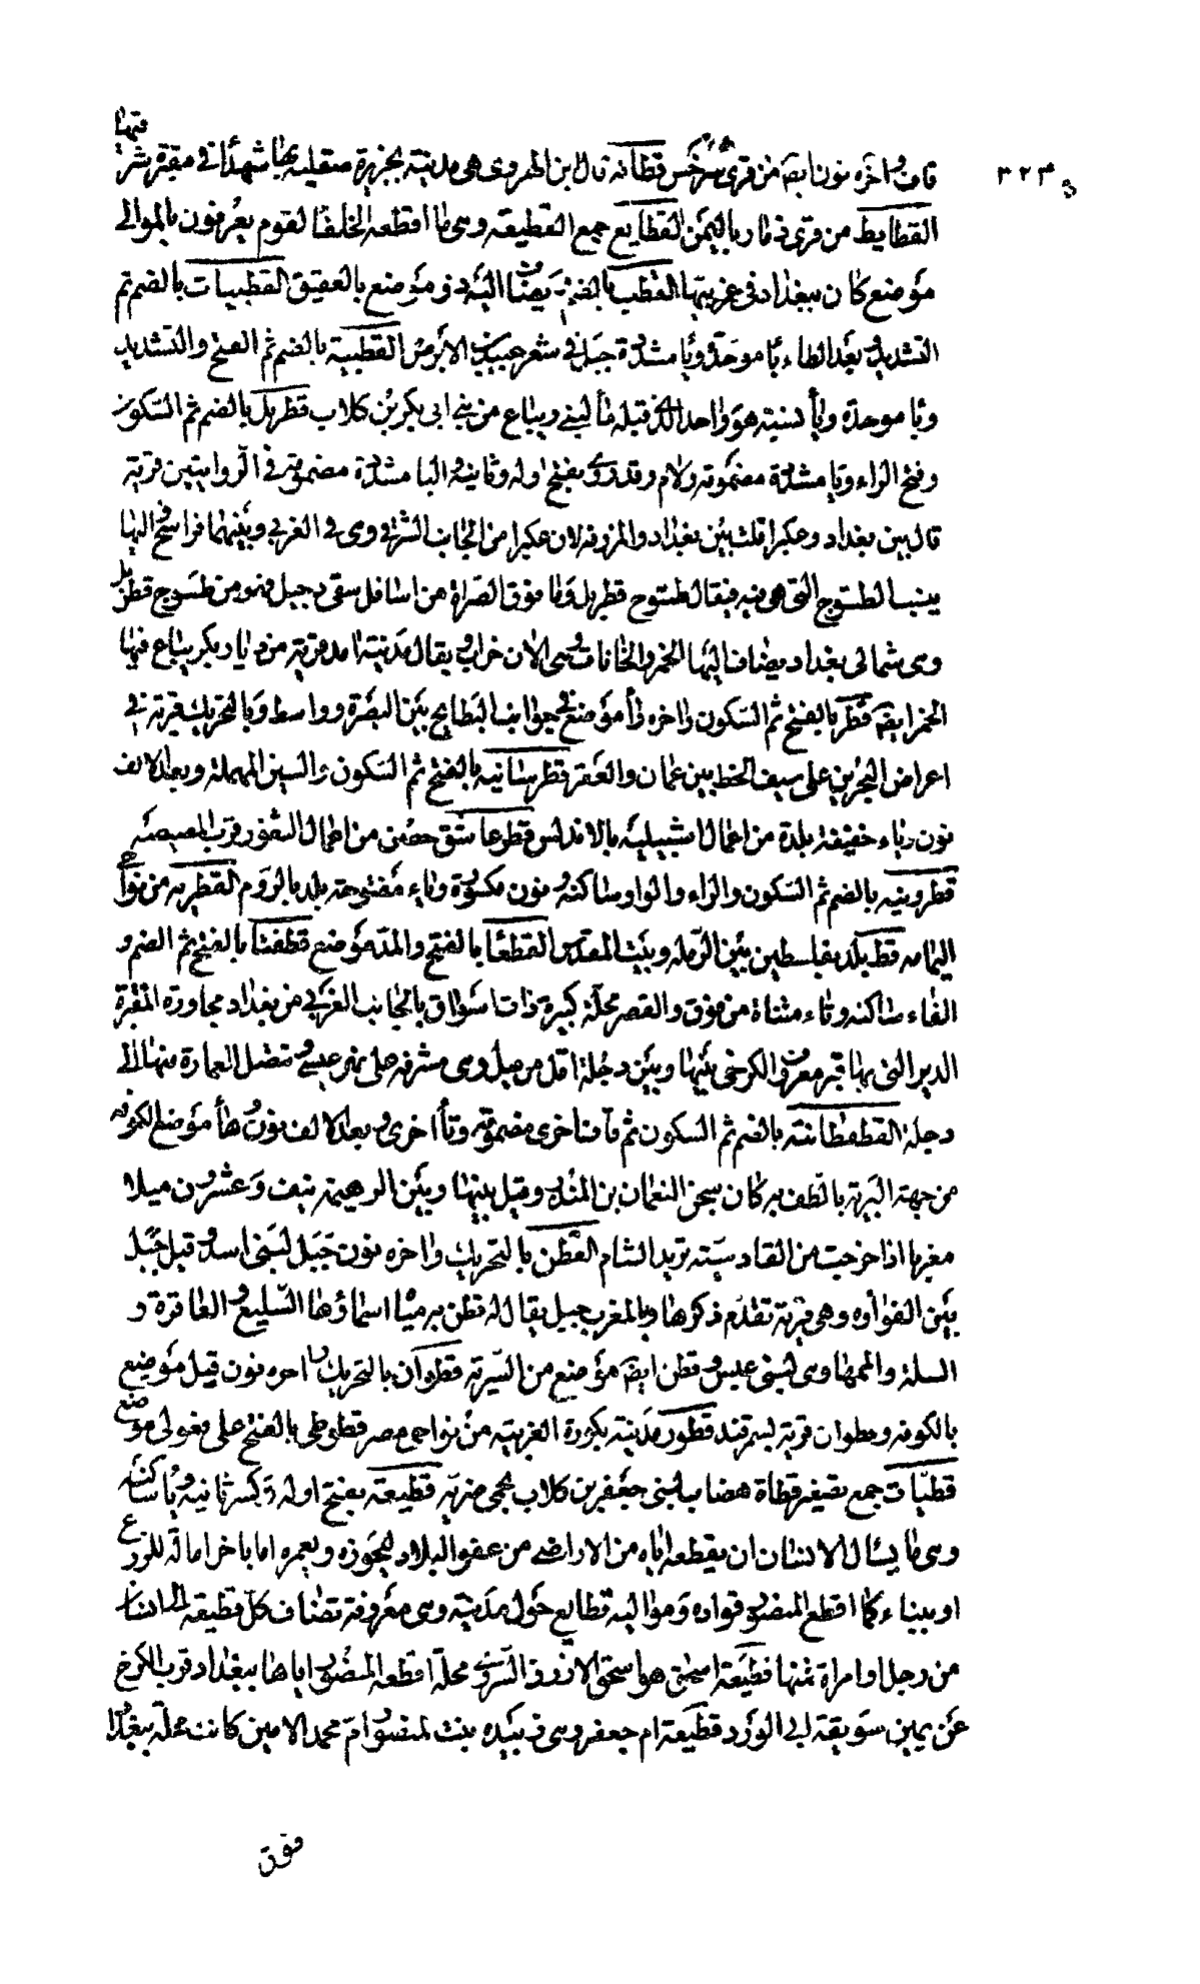 فيها
٣٢٣
قاف واخره نون ايضه من قرى سرخس قطانه قال ابن الهروى هى مدينة بجزيرة صقليه بها شهدا فى مقبرة شر
القطايط من قرى ذمار باليمن القطايع جمع القطيعة وهى ما اقطعه الخلفا لقوم يعرفون بالموالى
موضع كان ببغداد فى غربيها القطب بالضم يضاف اليه ذو موضع بالعقيق القطبيات بالضم ثم
التشديد وبعد الطاء با موحدة ويا مشددة جبل فى شعر عبيد بن الابرص القطبية بالضم ثم الفتح والتشديد
وبا موحدة ويا نسبة هو واحد الذى قبله ما لبنى زنباع من بنى ابى بكر بن كلاب قطربل بالضم ثم السكون
وفتح الراء وبا مشددة مضمومة ولام وقد روى بفتح اوله وثانيه والبا مشددة مضمومة فى الروايتين قرية
قال بين بغداد وعكبرا قلت بين بغداد والمزرفه لان عكبرا من الجانب الشرقى وهى فى الغربى وبينهما فراسخ اليها
ينسب الطسوج التى هى فيه فيقال طسوج قطربل وما فوق الصراة من اسافل سقى دجيل فهو من طسوج قطربل
وهى شمالى بغداد يضاف اليها الخمر والحانات وهى الان خراب ويقال مدينة امد قرية من ديار بكر يباع فيها
الخمر ايضه قطر بالفتح ثم السكون واخره را موضع فى جوانب البطايح بين البصرة وواسط وبالتحريك قرية فى
اعراض البحرين على سيف الخط بين عمان والعقر قطرسانيه بالفتح ثم السكون والسين المهملة وبعد الالف
نون وياء خفيفة بلدة من اعمال اشبيليه بالاندلس قطرعاشق حصن من اعمال الثغور قرب المصيصه
قطرونيه بالضم ثم السكون والراء والواو ساكنه ونون مكسورة وياء مفتوحة بلد بالروم القطريه من نواحى
اليمامه قط بلد بفلسطين بين الرمله وبيت المقدس القطعا بالفتح والمد موضع قطفتا بالفتح ثم الضم و
الفاء ساكنه وتاء مثناة من فوق والقصر محلة كبيرة ذات اسواق بالجانب الغربى من بغداد مجاورة المقبرة
الدير التى بها قبر معروف الكرخى بينها وبين دجلة اقل من ميل وهى مشرفه على نهر عيسى وتتصل العمارة منها الى
دجلة القطقطانة بالضم ثم السكون ثم قاف اخرى مضمومة وطا اخرى وبعد الالف نون وها موضع بالكوفه
من جهة البرية بالطف به كان سجن النعمان بن المنذر وقيل بينها وبين الرهيمة نيف وعشرون ميلا
مغربا اذا خرجت من القادسيته تريد الشام القطن بالتحريك واخره نون جبل لبنى اسد وقيل جبل
بين الفوارة وهى قرية تقدم ذكرها وبالمغرب جبل يقال له قطن به مياه اسماؤها السليع والعاقرة و
السلة والممها وهى لبنى عبس وقطن ايضه موضع من الشربة قطوان بالتحريك واخره نون قيل موضع
بالكوفه وقطوان قرية بسمرقند قطور مدينة بكورة الغربية من نواحى مصر قطوطى بالفتح على فعولى موضع
قطيات جمع تصغير قطاة هضاب لبنى جعفر بن كلاب بحمى ضريه قطيعة بفتح اوله وكسر ثانيه ويا ساكنه
وهى ما يسال الانسان ان يقطعه اياه من الاراضى من عفو البلاد ليحوزه ويعمره اما باخراجه للزرع
او ببناء كما اقطع المنصور قواده ومواليه قطايع حول مدينته وهى معروفة تضاف كل قطيعه الى انسان
من رجل او امراة فمنها قطيعة اسحق هو اسحق الازرق الشروى محلة اقطعه المنصور اياها ببغداد قرب الكرخ
عن يمين سويقة ابى الورد قطيعة ام جعفر وهى زبيده بنت المنصور ام محمد الامين كانت محلة ببغداد
فوق